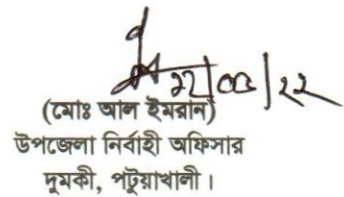 ২২/০৫/২২
(মোঃ আল ইমরান)
উপজেলা নির্বাহী অফিসার
দুমকী, পটুয়াখালী।